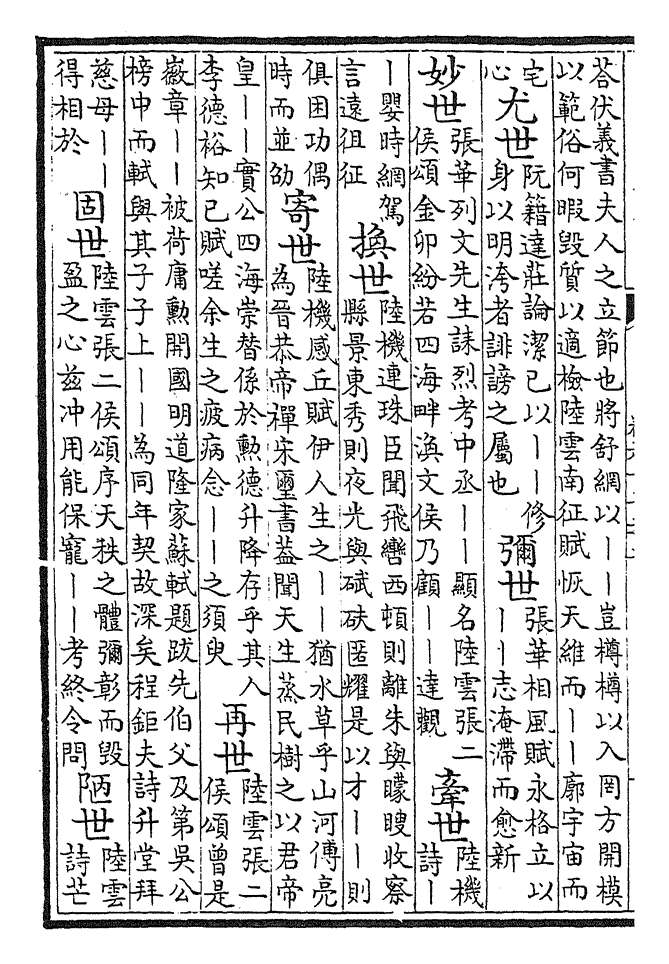 荅伏義書夫人之立節也將舒網以丨丨豈樽樽以入罔方開模
以範俗何暇毀質以適檢陸雲南征賦恢天維而丨丨廓宇宙而
宅
心
尤世
阮籍達莊論潔已以丨丨修
身以明洿者誹謗之屬也
彌世
張華相風賦永格立以
丨丨志淹滯而愈新
妙世
張華列文先生誄烈考中丞丨丨顯名陸雲張二
侯頌金卯紛若四海畔渙文侯乃顧丨丨達觀
牽世
陸機
詩丨
丨嬰時網駕
言遠徂征
換世
陸機連珠臣聞飛轡西頓則離朱與矇瞍收察
縣景東秀則夜光與碔砆匿耀是以才丨丨則
俱困功偶
時而並劭
寄世
陸機感丘賦伊人生之丨丨猶水草乎山河傅亮
為晉恭帝禪宋璽書葢聞天生蒸民樹之以君帝
皇丨丨實公四海崇替係於勲德升降存乎其人
李德裕知已賦嗟余生之疲病念丨丨之須臾
再世
陸雲張二
侯頌曾是
徽章丨丨被荷庸勲開國明道隆家蘇軾題跋先伯父及第吳公
榜中而軾與其子子上丨丨為同年契故深矣程鉅夫詩升堂拜
慈母丨丨
得相於
固世
陸雲張二侯頌序天秩之體彌彰而毀
盈之心茲冲用能保寵丨丨考終令問
陋世
陸雲
詩芒